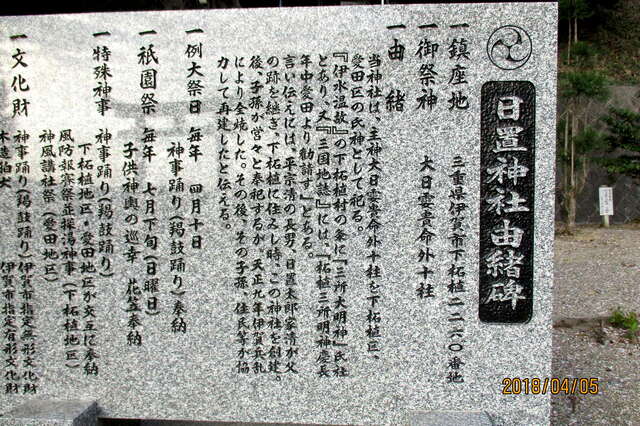 日置神社由緒碑
一鎮座地　三重県伊賀市下柘植二二六〇番地
一御祭神　大日孁貴命外十柱
一由緒
当神社は、主神大日孁貴命外十柱を下柘植区、
愛田区の氏神として祀る。
『伊水温故』の下柘植村の条に『三所大明神』氏社
とあり、又『三国地誌』には、『柘植三所明神慶長
年中愛田より勧請す』とある。
言い伝えには、平宗清の長男、日置太郎家清が父
の跡を継ぎ、下柘植に住みし時、この神社を創建。
後、子孫が営々と奉祀するが、天正九年伊賀兵乱
により全焼した。その後、その子孫、住民等が協
力して再建したと伝える。
一例大祭日　毎年　四月十日
神事踊り(羯鼓踊り)奉納
一祇園祭　毎年　七月下旬(日曜日)
子供神輿の巡幸　花笠奉納
一特殊神事　神事踊り(羯鼓踊り)
下柘植地区・愛田地区が交互に奉納
風防報賽祭並探湯神事(下柘植地区)
神風講社祭(愛田地区)
一文化財　神事踊り(羯鼓踊り)伊賀市指定無形文化財
木造狛犬　伊賀市指定有形文化財
2018/04/05